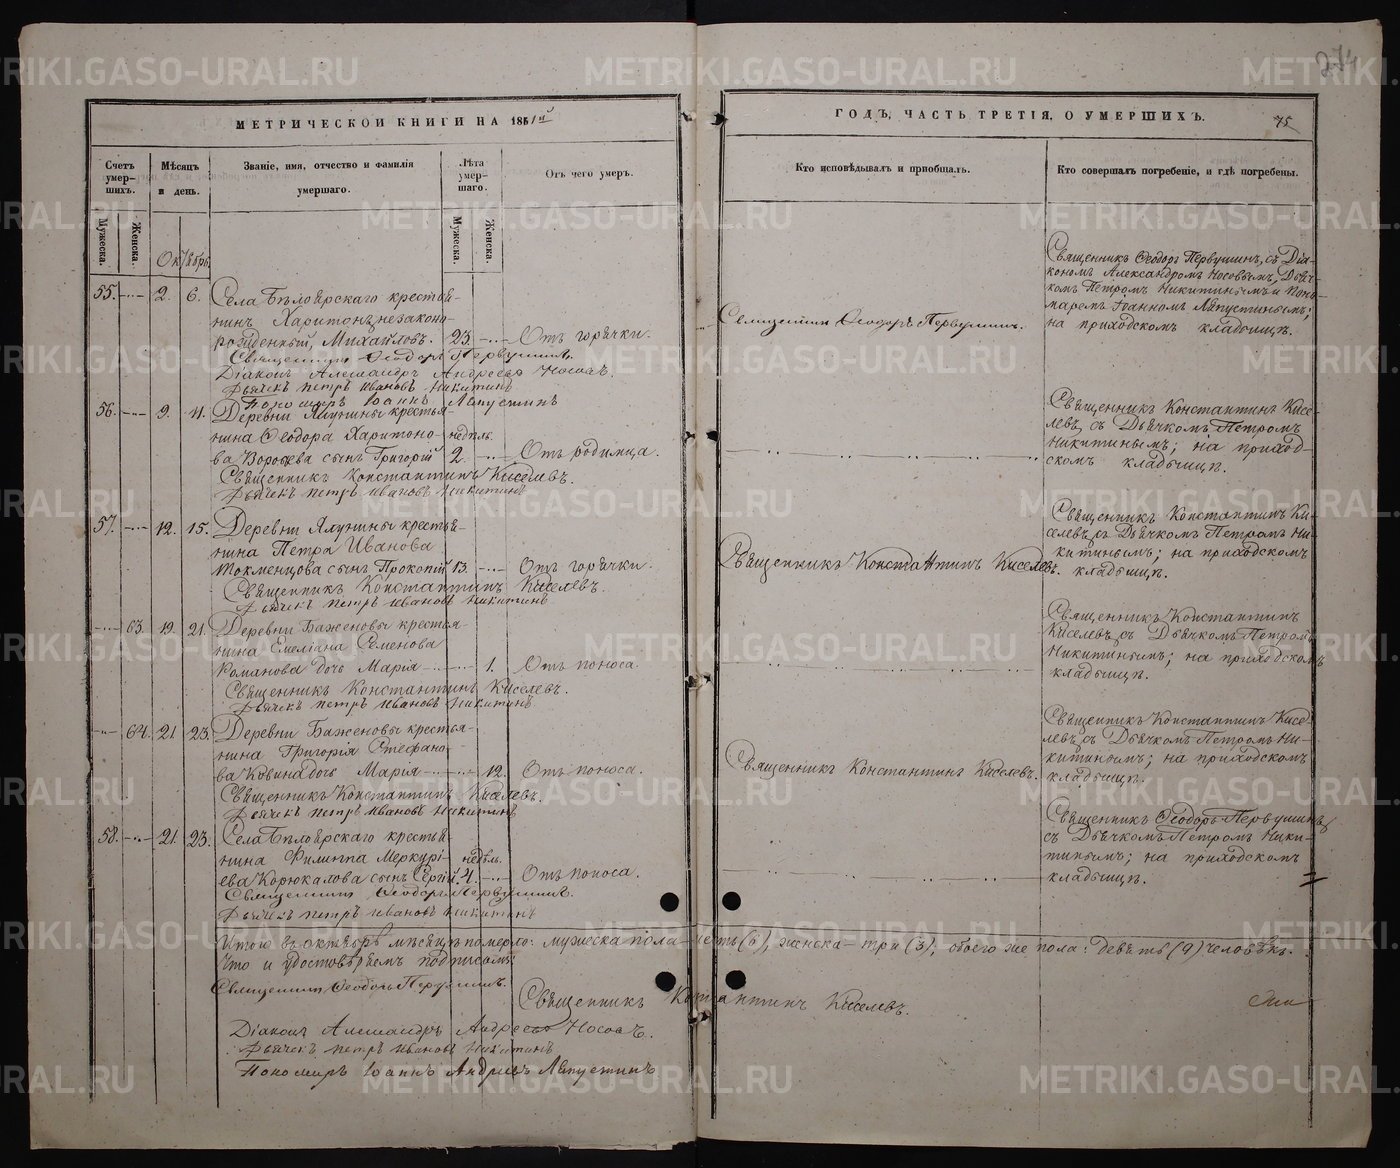 274
МЕТРИЧЕСКОЙ КНИГИ НА 1861й
ГОДЪ, ЧАСТЬ ТРЕТІЯ, О УМЕРШИХЪ.
75
Счетъ умер-шихъ.
Мѣсяцъ и день.
Званіе, имя, отчество и фамилія умершаго.
Лѣта умер-шаго.
Отъ чего умеръ.
Кто исповѣдывалъ и пріобщалъ.
Кто совершалъ погребеніе, и гдѣ погребены.
Мужеска.
Женска.
Октябрь
Мужеска.
Женска.
55. 2. 6. Села Бѣлоярскаго крестья-
нинъ Харитонъ, незаконо-
рожденный, Михайловъ. 23. Отъ горячки.
Священникъ Ѳеодоръ Первушинъ.
Діаконъ Александръ Андреевъ Носовъ.
Дьячекъ Петръ Ивановъ Никитинъ
Пономарь Іоаннъ Ляпустинъ
Священникъ Ѳеодоръ Первушинъ.
Священникъ Ѳеодоръ Первушинъ, съ Діа-
кономъ Александромъ Носовымъ, Дьяч-
комъ Петромъ Никитинымъ и Поно-
маремъ Іоанномъ Ляпустинымъ;
на приходскомъ кладбищѣ.
56. 9. 11. Деревни Ялунины крестья-
нина Ѳеодора Харитоно- недѣль.
ва Воробьева сынъ Григорій 2. Отъ родимца.
Священникъ Константинъ Киселевъ.
Дьячекъ Петръ Ивановъ Никитинъ
Священникъ Константинъ Кисе-
левъ, съ Дьячкомъ Петромъ
Никитинымъ; на приход-
скомъ кладбищѣ.
57. 12. 15. Деревни Ялунины крестья-
нина Петра Иванова
Токменцова сынъ Прокопій 13. Отъ горячки.
Священникъ Константинъ Киселевъ.
Дьячекъ Петръ Ивановъ Никитинъ
Священникъ Константинъ Киселевъ.
Священникъ Константинъ Ки-
селевъ съ Дьячкомъ Петромъ Ни-
китинымъ; на приходскомъ
кладбищѣ.
63. 19. 21. Деревни Баженовы крестья-
нина Емеліана Семенова
Романова дочь Марія 1. Отъ поноса.
Священникъ Константинъ Киселевъ.
Дьячекъ Петръ Ивановъ Никитинъ
Священникъ Константинъ
Киселевъ съ Дьячкомъ Петромъ
Никитинымъ; на приходскомъ
кладбищѣ.
64. 21 23. Деревни Баженовы крестья-
нина Григорія Стефано-
ва Ковина дочь Марія 12. Отъ поноса.
Священникъ Константинъ Киселевъ.
Дьячекъ Петръ Ивановъ Никитинъ
Священникъ Константинъ Киселевъ.
Священникъ Константинъ Кисе-
левъ съ Дьячкомъ Петромъ Ни-
китинымъ; на приходскомъ
кладбищѣ.
58. 21. 23. Села Бѣлоярскаго крестья-
нина Филиппа Меркурі- недѣль.
ева Корюкалова сынъ Сергій. 4. Отъ поноса.
Священникъ Ѳеодоръ Первушинъ.
Дьячекъ Петръ Ивановъ Никитинъ
Священникъ Ѳеодоръ Первушинъ,
съ Дьячкомъ Петромъ Ники-
тинымъ; на приходскомъ
кладбищѣ.
Итого въ октябрѣ мѣсяцѣ померло: мужеска пола шесть (6), женска три (3), обоего же пола: девять (9) человѣкъ.
Что и удостовѣряемъ подписомъ:
Священникъ Ѳеодоръ Первушинъ.
Священникъ Константинъ Киселевъ.
Діаконъ Александръ Андреевъ Носовъ.
Дьячекъ Петръ Ивановъ Никитинъ
Пономарь Іоаннъ Андреевъ Ляпустинъ
METRIKI.GASO-URAL.RU